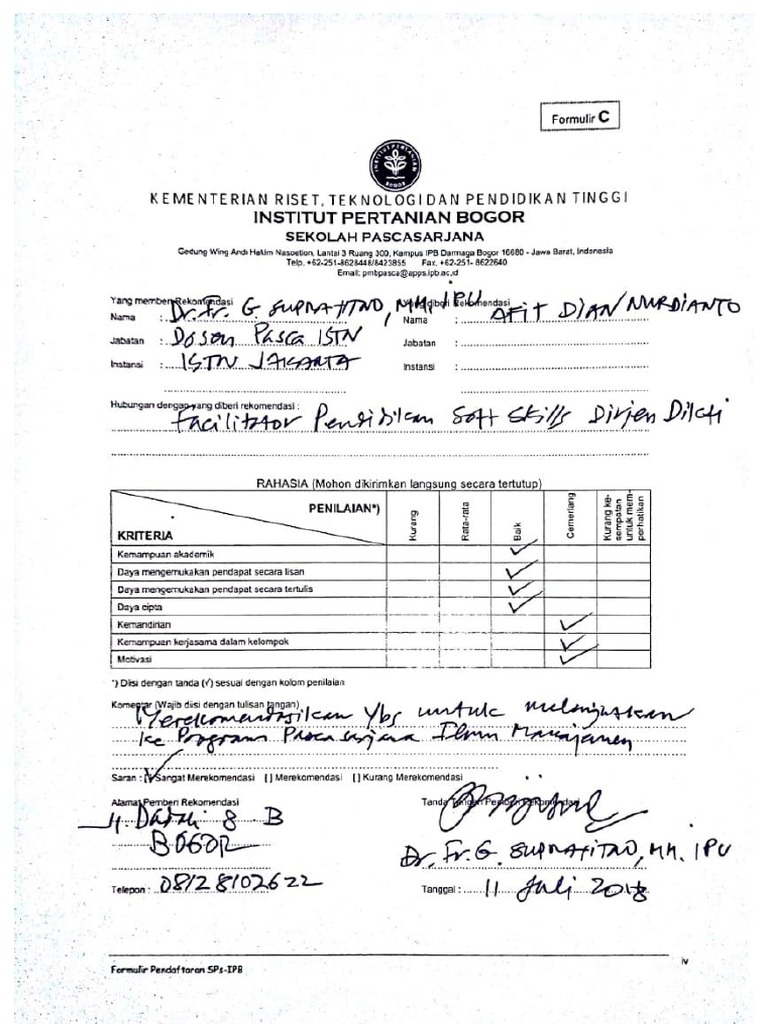 Formulir C
INSTITUT PERTANIAN
BOGOR
KEMENTERIAN RISET, TEKNOLOGI DAN PENDIDIKAN TINGGI
INSTITUT PERTANIAN BOGOR
SEKOLAH PASCASARJANA
Gedung Wing Andi Hakim Nasoetion, Lantai 3 Ruang 300, Kampus IPB Darmaga Bogor 16680 - Jawa Barat, Indonesia
Telp. +62-251-8628448/8423855 Fax. +62-251- 8622640
Email: pmbpasca@apps.ipb.ac.id
Yang memberi Rekomendasi Yang diberi Rekomendasi
Nama : Dr. Ir. G. SUPRAJITNO, MM, IPU Nama : AFIT DIAN NURDIANTO
Jabatan : Dosen Pasca ISTN Jabatan :
Instansi : ISTN JAKARTA Instansi :
Hubungan dengan yang diberi rekomendasi :
Facilitator Pendidikan Soft Skills Dirjen Dikti
RAHASIA (Mohon dikirimkan langsung secara tertutup)
PENILAIAN*) Kurang Rata-rata Baik Cemerlang Kurang ke-sempatan untuk mem-perhatikan
KRITERIA
Kemampuan akademik ✓
Daya mengemukakan pendapat secara lisan ✓
Daya mengemukakan pendapat secara tertulis ✓
Daya cipta ✓
Kemandirian ✓
Kemampuan kerjasama dalam kelompok ✓
Motivasi ✓
*) Diisi dengan tanda (√) sesuai dengan kolom penilaian
Komentar (Wajib diisi dengan tulisan tangan)
Merekomendasikan ybs untuk melanjutkan
ke Program Pascasarjana Ilmu Manajemen
Saran : [✓] Sangat Merekomendasi [ ] Merekomendasi [ ] Kurang Merekomendasi
Alamat Pemberi Rekomendasi Tanda Tangan Pemberi Rekomendasi
8 B
BOGOR
Dr. Ir. G. SUPRAJITNO, MM. IPU
Telepon : 08128102622 Tanggal : 11 Juli 2018
iv
Formulir Pendaftaran SPs-IPB